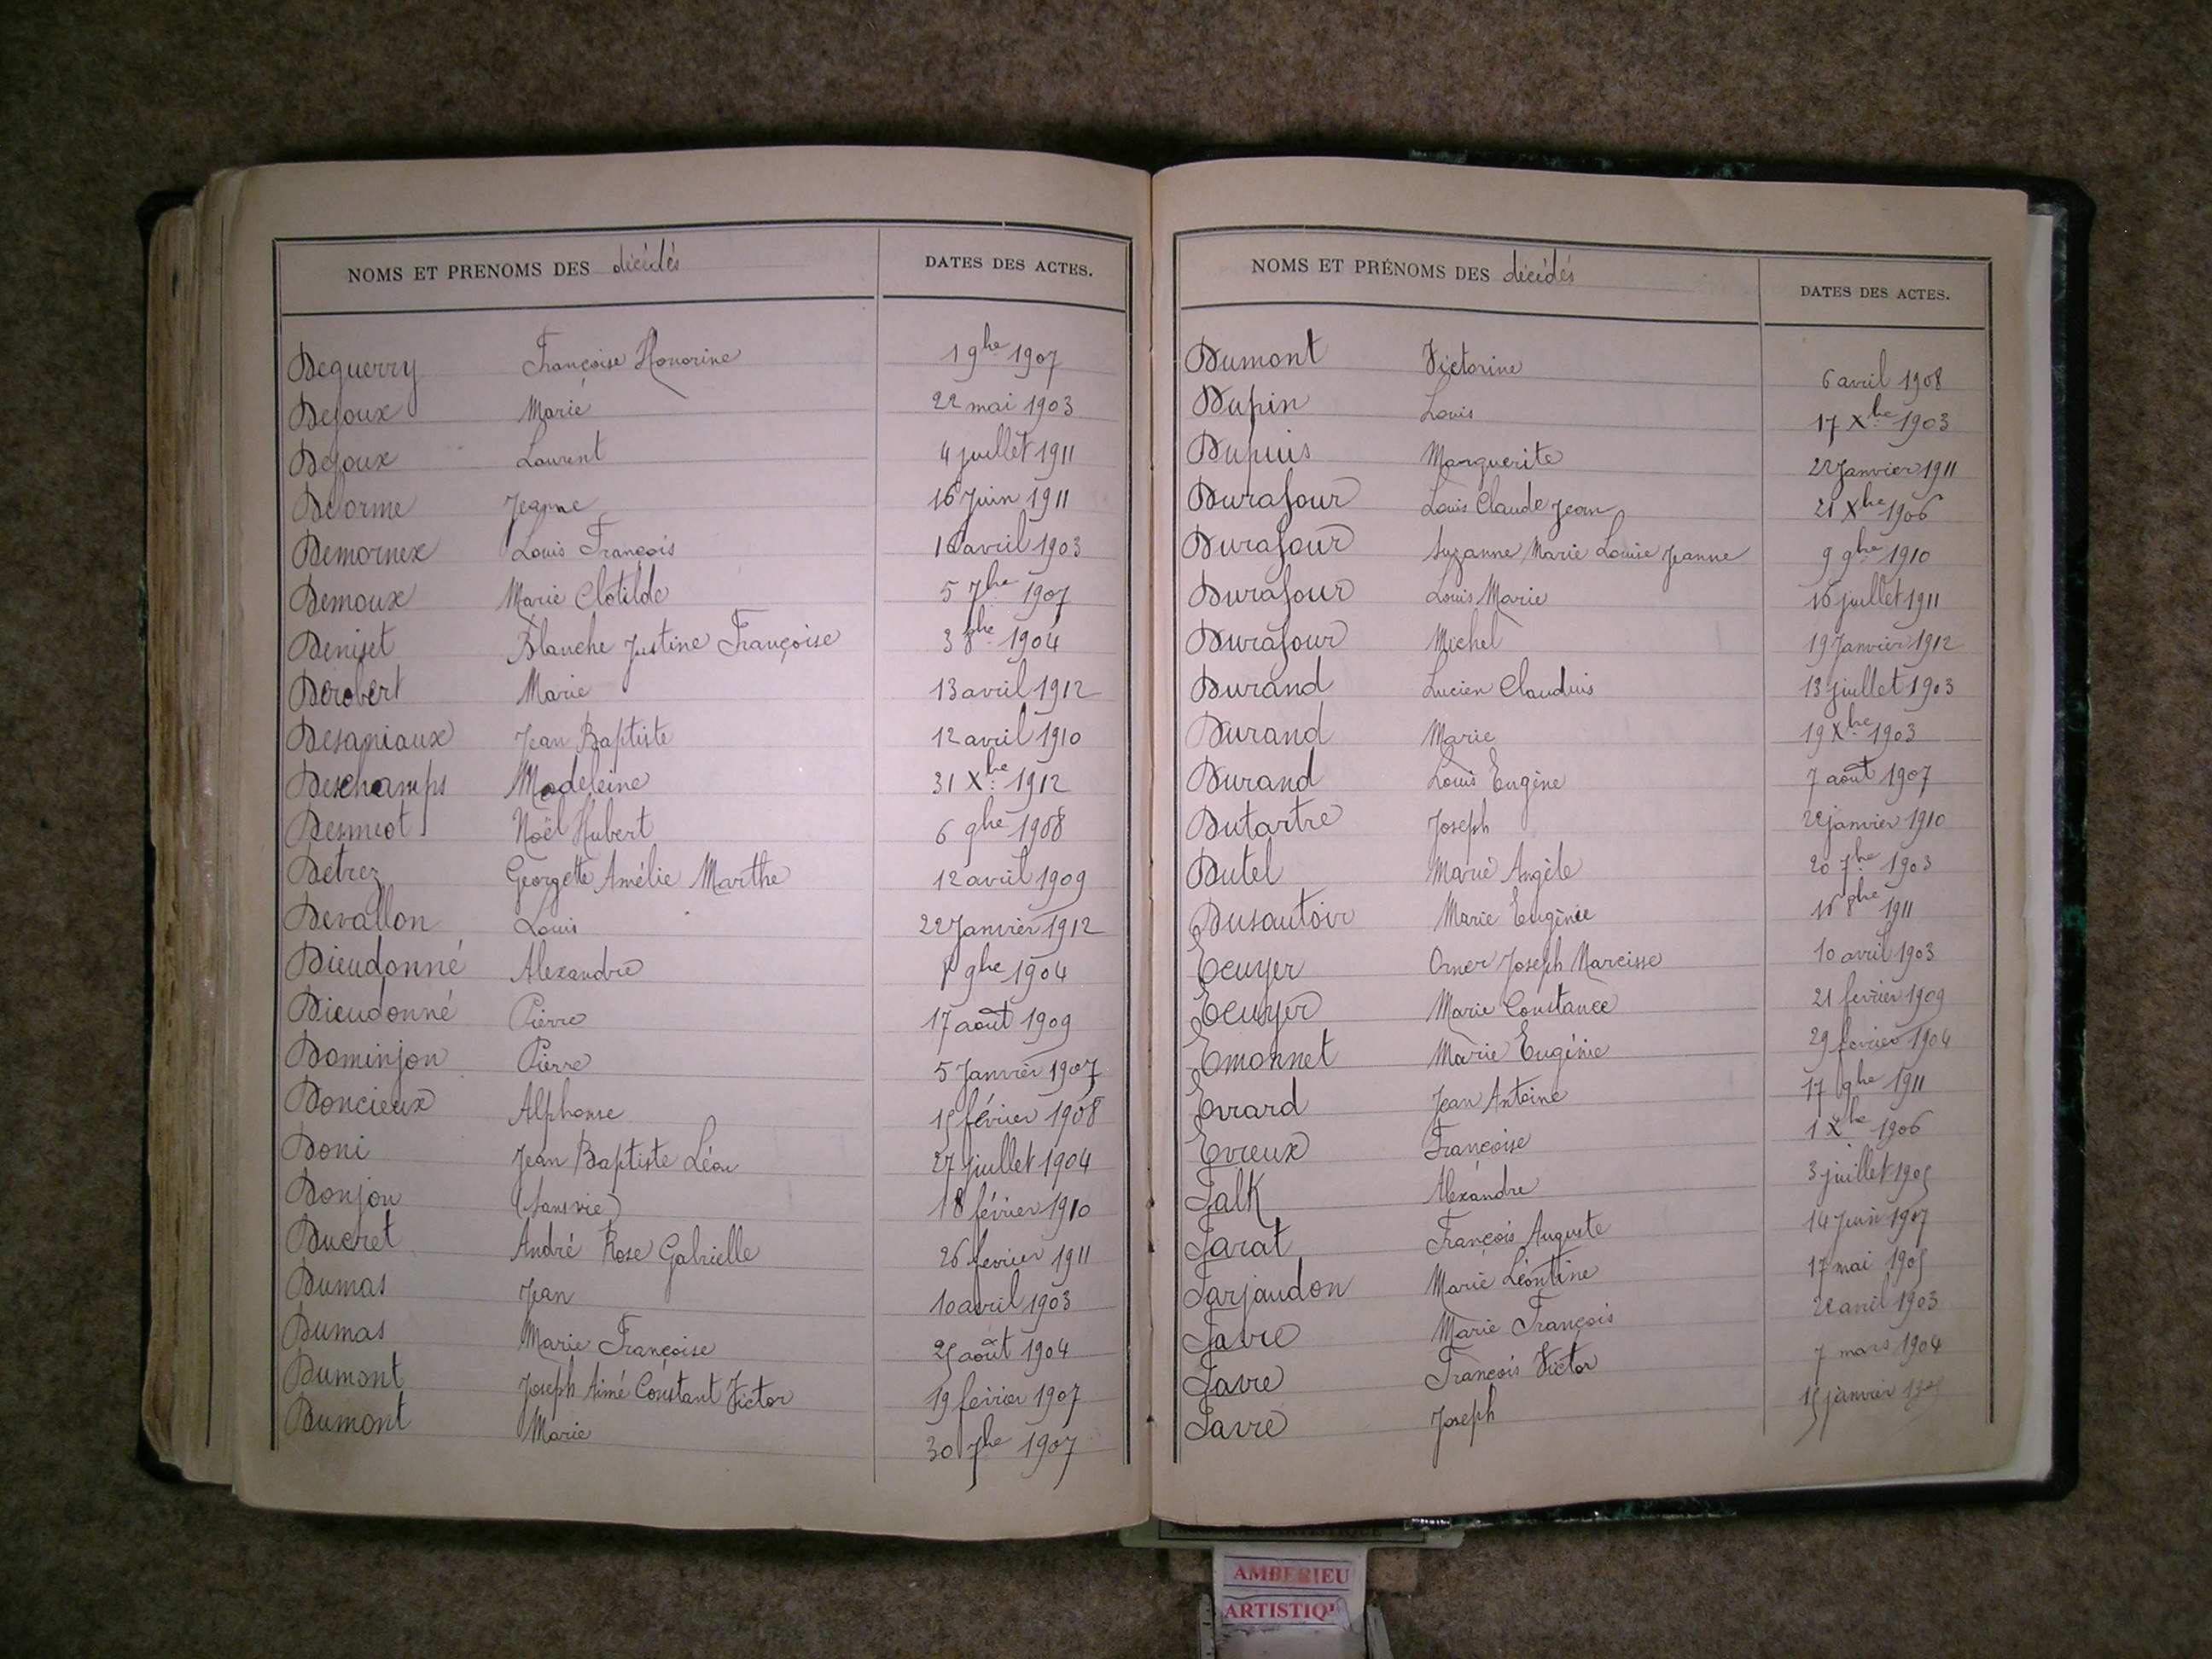 NOMS ET PRENOMS DES décédés DATES DES ACTES.
Deguerry Françoise Honorine 1 9bre 1907
Dejoux Marie 22 mai 1903
Dejoux Laurent 4 juillet 1911
Delorme Jeanne 16 Juin 1911
Demornex Louis François avril 1903
Demoux Marie Clotilde 5 7bre 1907
Deniset Blanche Justine Françoise 3 8bre 1904
Derobert Marie 13 avril 1912
Jean Baptiste 12 avril 1910
Deschamps Madeleine 31 Xbre 1912
Noël Hubert 6 9bre 1908
Detrez Georgette Amélie Marthe 12 avril 1909
Devallon Louis 22 Janvier 1912
Dieudonné Alexandre 9bre 1904
Dieudonné Pierre 17 août 1909
Dominjon Pierre 5 Janvier 1907
Doncieux Alphonse 15 février 1908
Doni Jean Baptiste Léon 27 juillet 1904
Donjon (sans vie) 18 février 1910
Ducret André Rose Gabrielle 26 fevrier 1911
Dumas Jean 10 avril 1903
Dumas Marie Françoise 25 août 1904
Dumont Joseph Aimé Constant Victor 19 fevrier 1907
Dumont Marie 30 7bre 1907
NOMS ET PRÉNOMS DES décédés DATES DES ACTES.
Dumont Victorine 6 avril 1908
Dupin Louis 17 Xbre 1903
Dupuis Marguerite 22 Janvier 1911
Durafour Louis Claude Jean 21 Xbre 1906
Durafour Suzanne Marie Louise Jeanne 9 9bre 1910
Durafour Louis Marie 16 juillet 1911
Durafour Michel 19 Janvier 1912
Durand Lucien Claudius 13 juillet 1903
Durand Marie 19 Xbre 1903
Durand Louis Eugène 7 août 1907
Dutartre Joseph 22 janvier 1910
Dutel Marie Angèle 20 7bre 1903
Dusautoir Marie Eugènie 16 8bre 1911
Ecuyer Omer Joseph Narcisse 10 avril 1903
Ecuyer Marie Constance 21 fevrier 1909
Emonnet Marie Eugénie 29 fevrier 1904
Evrard Jean Antoine 17 9bre 1911
Evreux Françoise 1 Xbre 1906
Falk Alexandre 3 juillet 1905
Farat François Auguste 14 Juin 1907
Farjaudon Marie Léontine 17 mai 1905
Favre Marie François 22 avril 1903
Favre François Victor 7 mars 1904
Favre Joseph 15 janvier
AMBERIEU
ARTISTIQU